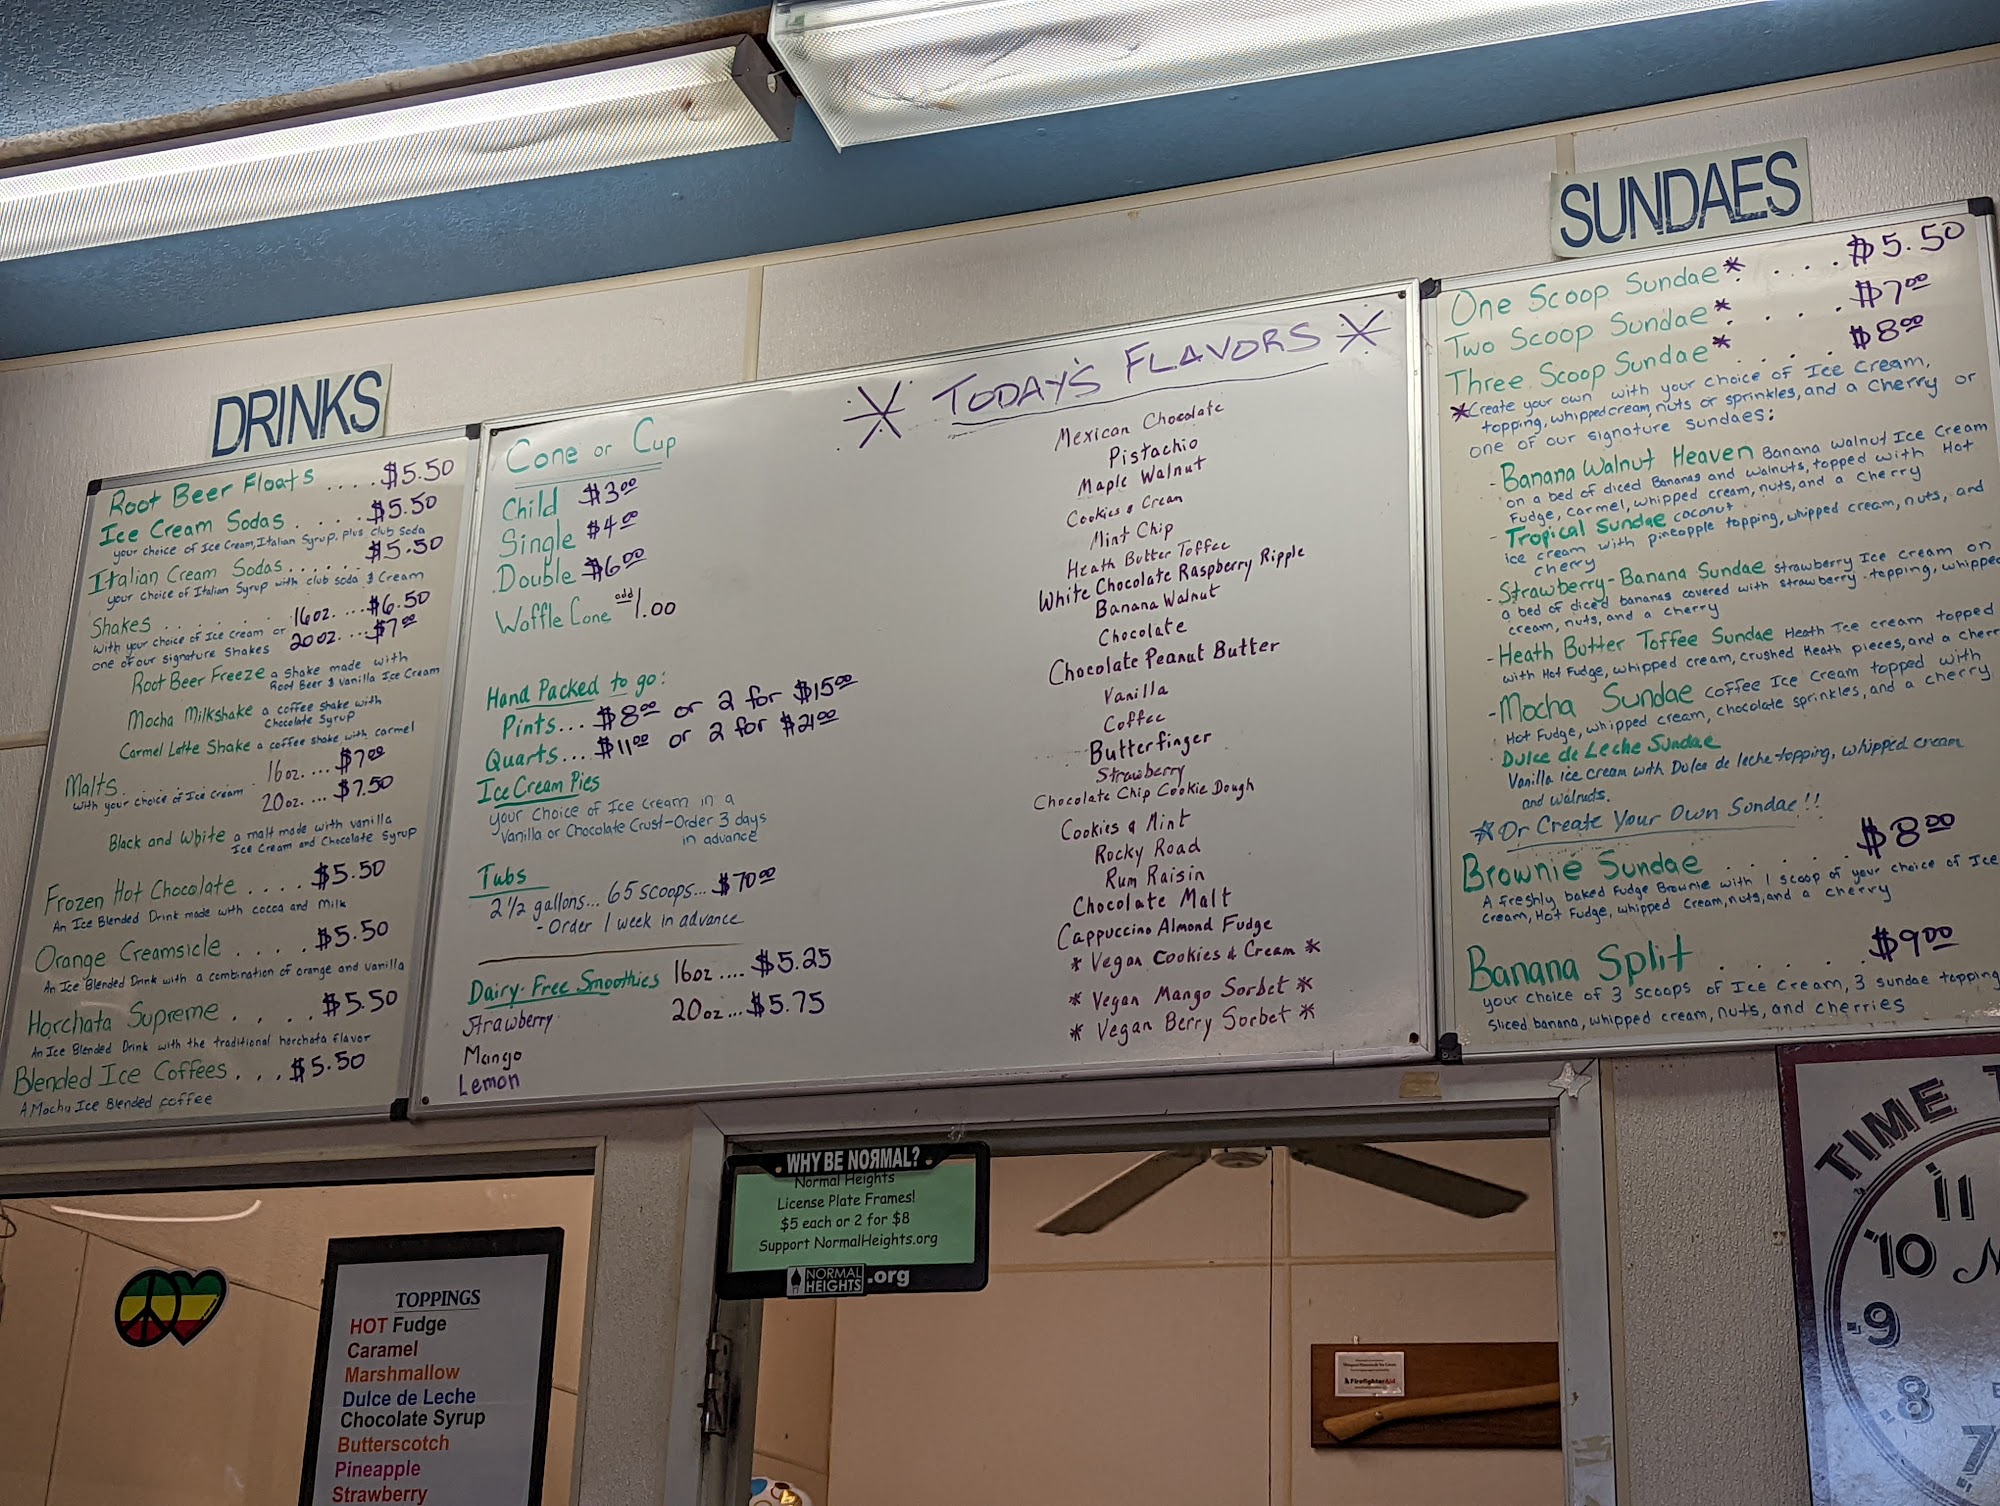 DRINKS
Root Beer Floats .... $5.50
Ice Cream Sodas .... $5.50
your choice of Ice Cream, Italian Syrup, plus club soda
Italian Cream Sodas ...... $5.50
your choice of Italian Syrup with club soda & Cream
Shakes ........ 16oz. ... $6.50
with your choice of Ice Cream or 20oz. ... $7.00
one of our signature shakes
Root Beer Freeze a shake made with
Root Beer & Vanilla Ice Cream
Mocha Milkshake a coffee shake with
Chocolate Syrup
Carmel Latte Shake a coffee shake with carmel
Malts ........ 16oz. ... $7.00
with your choice of Ice Cream 20oz. ... $7.50
Black and White a malt made with vanilla
Ice Cream and Chocolate Syrup
Frozen Hot Chocolate .... $5.50
An Ice Blended Drink made with cocoa and milk
Orange Creamsicle .... $5.50
An Ice Blended Drink with a combination of orange and vanilla
Horchata Supreme .... $5.50
An Ice Blended Drink with the traditional horchata flavor
Blended Ice Coffees ... $5.50
A Mocha Ice Blended coffee
Cone or Cup
Child $3.00
Single $4.00
Double $6.00
Waffle Cone add 1.00
Hand Packed to go:
Pints... $8.00 or 2 for $15.00
Quarts... $11.00 or 2 for $21.00
Ice Cream Pies
your choice of Ice cream in a
Vanilla or Chocolate Crust-Order 3 days
in advance
Tubs
2 1/2 gallons... 65 scoops... $70.00
- Order 1 week in advance
Dairy-Free Smoothies 16oz .... $5.25
Strawberry 20oz... $5.75
Mango
Lemon
* TODAY'S FLAVORS *
Mexican Chocolate
Pistachio
Maple Walnut
Cookies & Cream
Mint Chip
Heath Butter Toffee
White Chocolate Raspberry Ripple
Banana Walnut
Chocolate
Chocolate Peanut Butter
Vanilla
Coffee
Butterfinger
Strawberry
Chocolate Chip Cookie Dough
Cookies & Mint
Rocky Road
Rum Raisin
Chocolate Malt
Cappuccino Almond Fudge
* Vegan Cookies & Cream *
* Vegan Mango Sorbet *
* Vegan Berry Sorbet *
SUNDAES
One Scoop Sundae* .... $5.50
Two Scoop Sundae* .... $7.00
Three Scoop Sundae* .... $8.00
*Create your own with your choice of Ice Cream,
topping, whipped cream, nuts or sprinkles, and a Cherry or
one of our signature sundaes:
- Banana Walnut Heaven Banana Walnut Ice Cream
on a bed of diced Bananas and walnuts, topped with Hot
Fudge, carmel, whipped cream, nuts, and a Cherry
- Tropical Sundae coconut
ice cream with pineapple topping, whipped cream, nuts, and
cherry
- Strawberry-Banana Sundae Strawberry Ice Cream on
a bed of diced bananas covered with strawberry topping, whipped
cream, nuts, and a cherry
- Heath Butter Toffee Sundae Heath Ice cream topped
with Hot Fudge, whipped cream, crushed Heath pieces, and a cherr
- Mocha Sundae Coffee Ice Cream topped with
Hot Fudge, whipped cream, chocolate sprinkles, and a cherry
- Dulce de Leche Sundae
Vanilla ice cream with Dulce de leche topping, whipped cream
and walnuts.
* Or Create Your Own Sundae!!
Brownie Sundae ...... $8.00
A freshly baked Fudge Brownie with 1 scoop of your choice of Ice
Cream, Hot Fudge, whipped cream, nuts, and a cherry
Banana Split ...... $9.00
your choice of 3 scoops of Ice Cream, 3 sundae topping
sliced banana, whipped cream, nuts, and cherries
WHY BE NORMAL?
Normal Heights
License Plate Frames!
$5 each or 2 for $8
Support NormalHeights.org
NORMAL HEIGHTS .org
TOPPINGS
HOT Fudge
Caramel
Marshmallow
Dulce de Leche
Chocolate Syrup
Butterscotch
Pineapple
Strawberry
FirefighterAid
TIME T
11
10
9
8
7